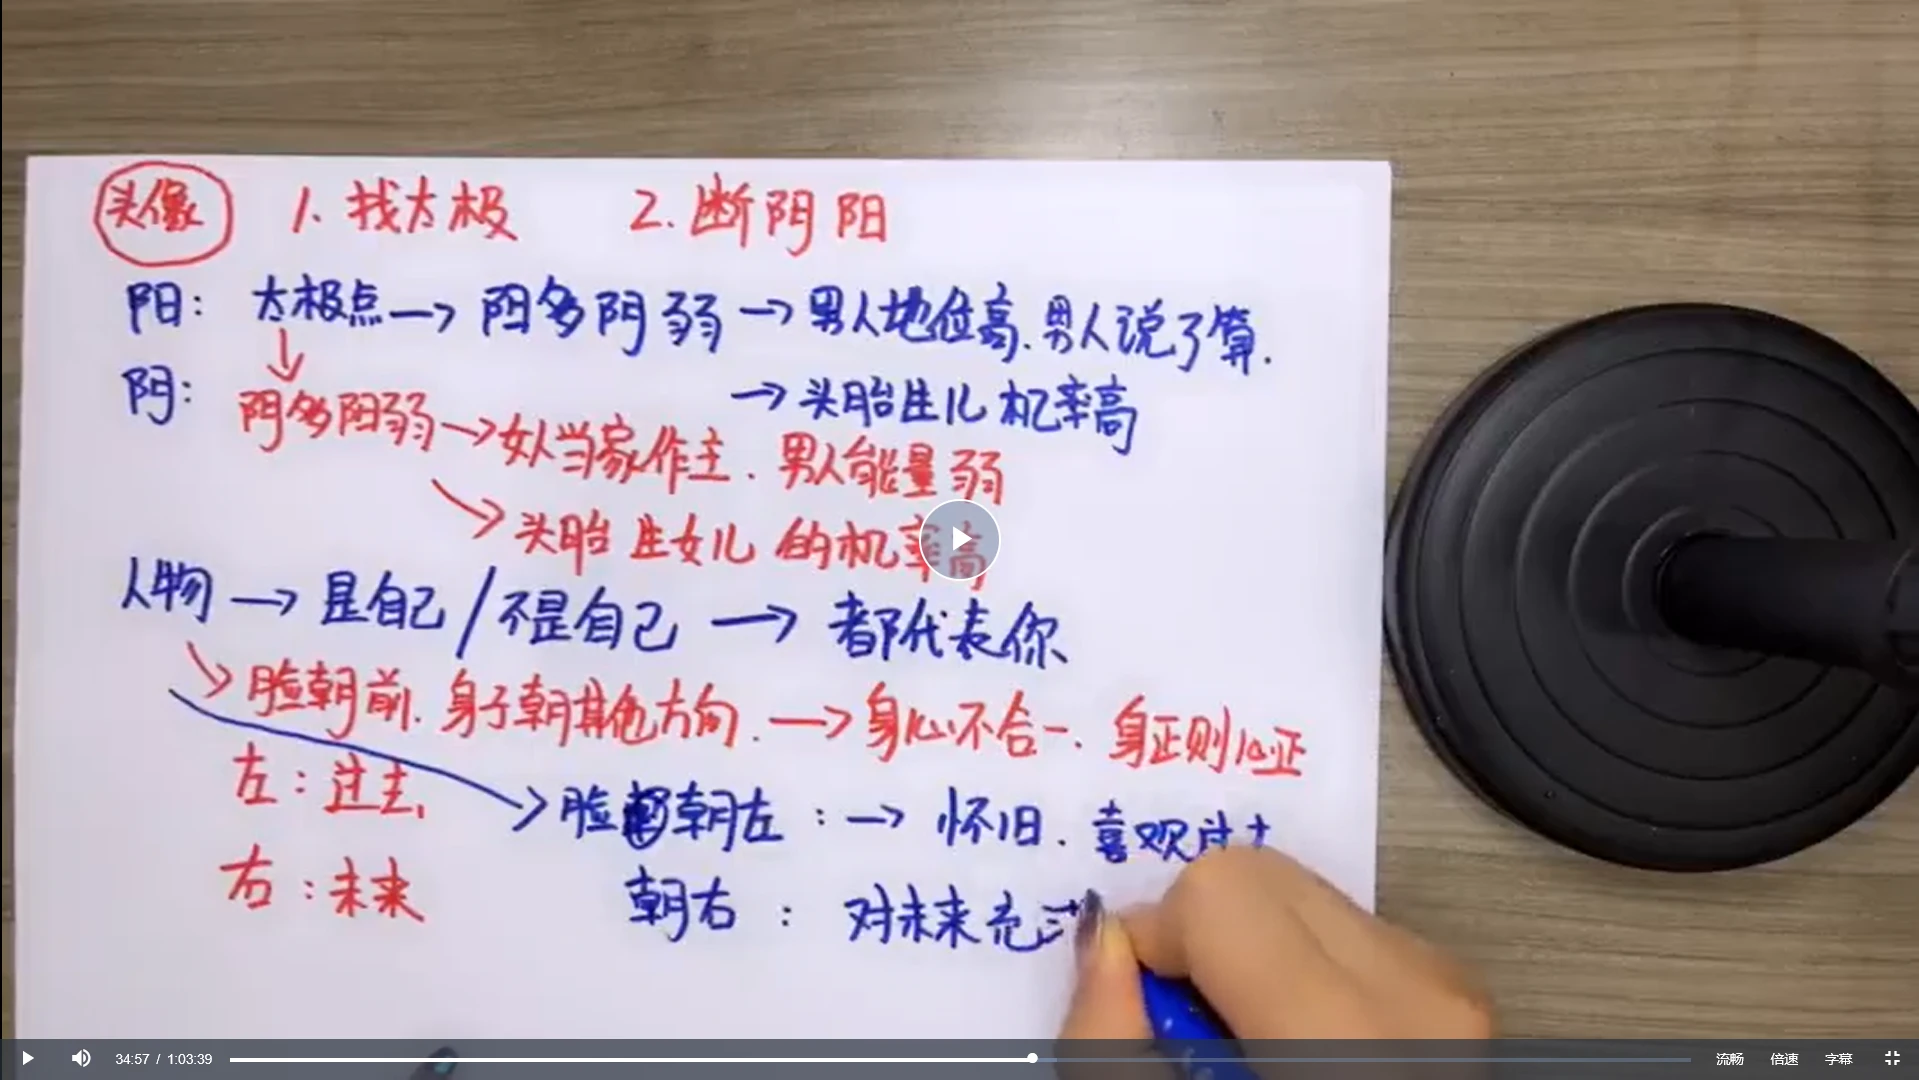 头像 1. 找太极 2. 断阴阳
阳: 太极点→阳多阴弱→男人地位高.男人说了算.
→头胎生儿机率高
阴: 阴多阳弱→女人当家作主.男人能量弱
头胎生女儿的机率高
人物→是自己/不是自己→都代表你
脸朝前.身子朝其他方向.→身心不合一.身正则心正
左:过去,
脸朝左:→怀旧.喜欢
右:未来
朝右:对未来充
34:57 / 1:03:39
流畅 倍速 字幕